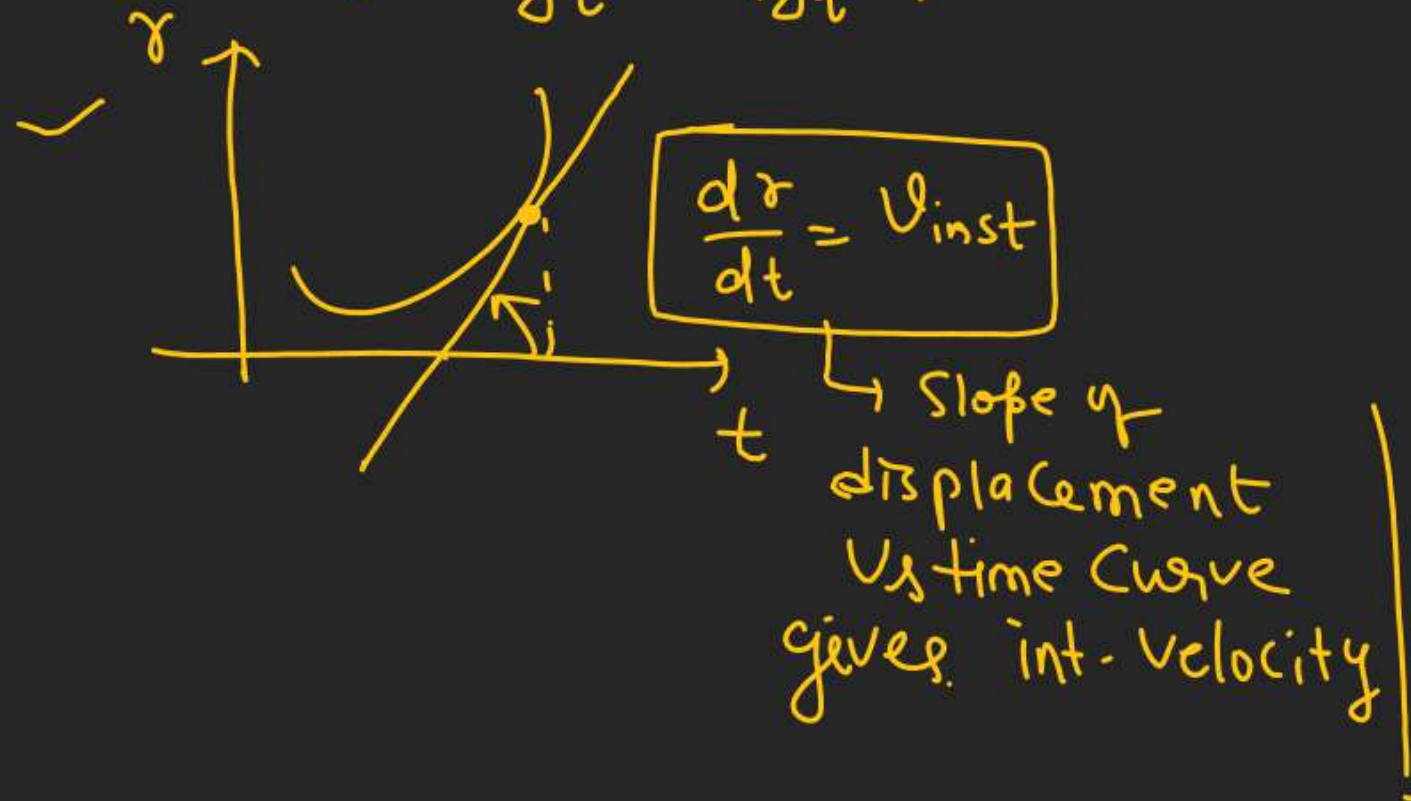 r
dr/dt = Vinst
t
→ Slope of
displacement
Vs time Curve
gives. int. Velocity